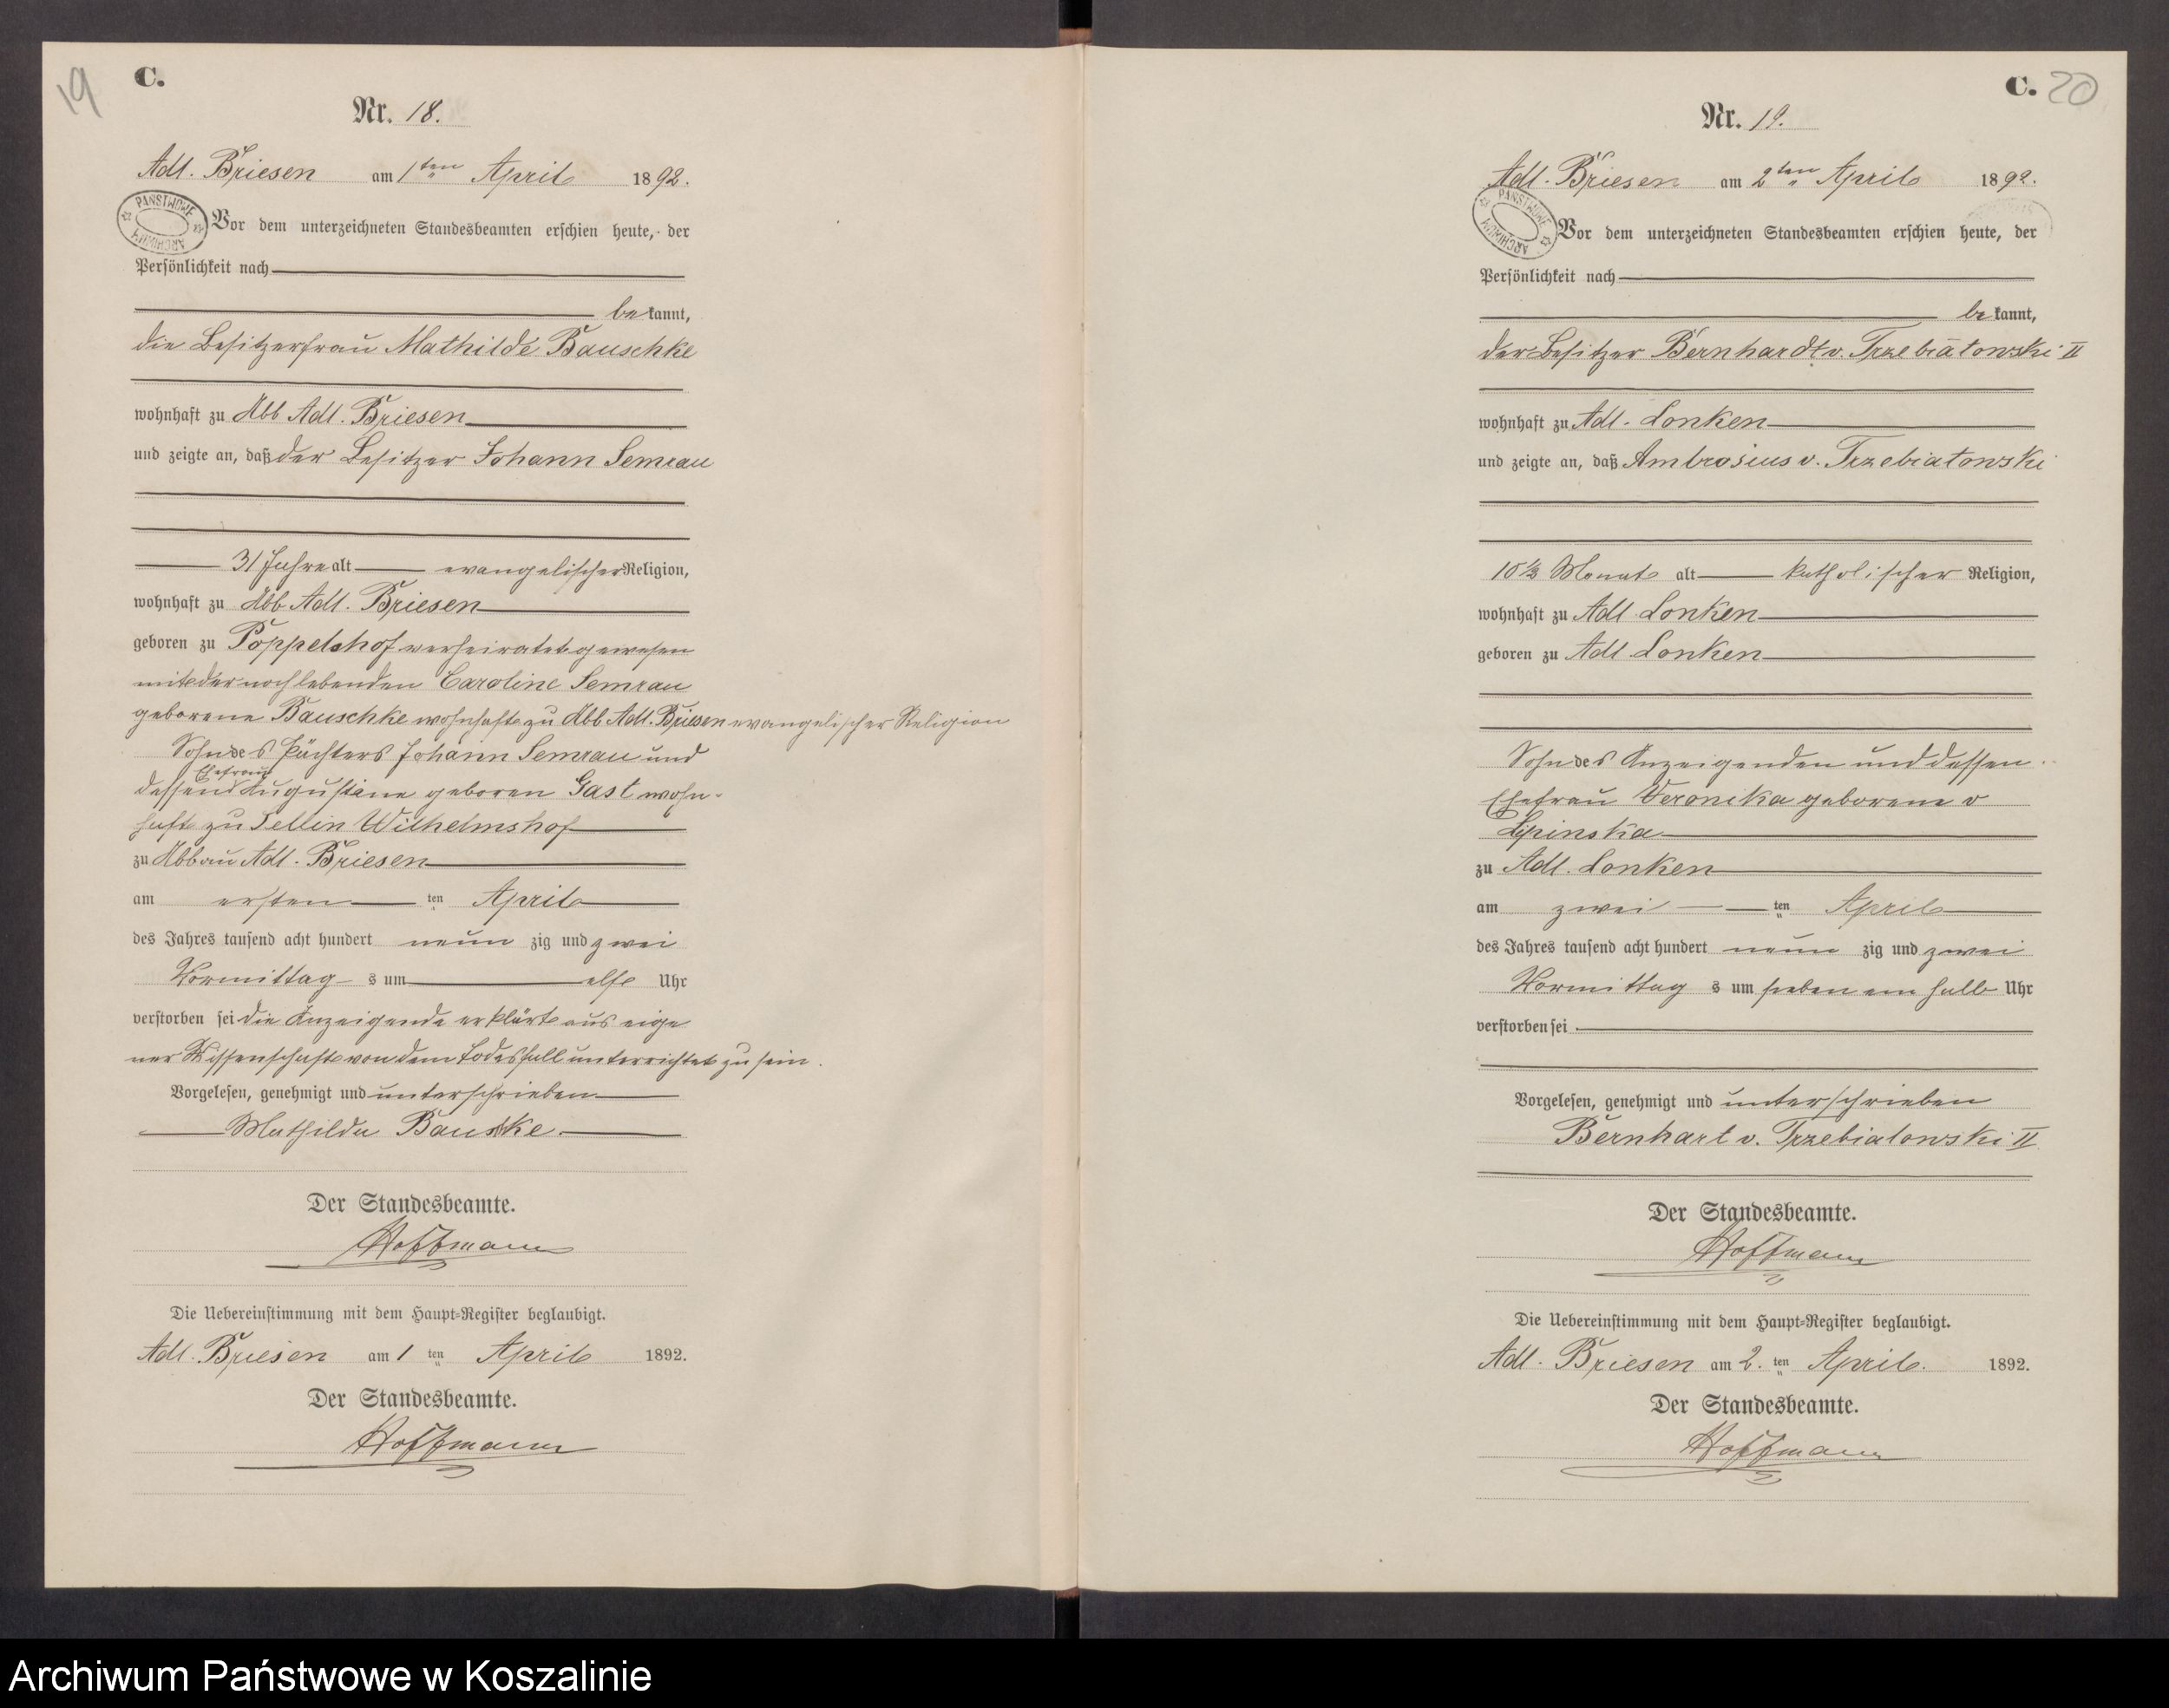 19
C.
Nr. 18.
Adl. Briesen am 1ten April 1892.
PAŃSTWOWE
ARCHIWUM
Vor dem unterzeichneten Standesbeamten erschien heute, der
Persönlichkeit nach
bekannt,
die Besitzerfrau Mathilde Bauschke
wohnhaft zu Abb Adl. Briesen
und zeigte an, daß der Besitzer Johann Semrau
31 Jahre alt evangelischer Religion,
wohnhaft zu Abb Adl. Briesen
geboren zu Poppelshof verheiratet gewesen
mit der noch lebenden Caroline Semrau
geborene Bauschke wohnhaft zu Abb Adl. Briesen evangelischer Religion
Sohn des Pächters Johann Semrau und
Ehefrau
dessen Augustine geboren Gast wohn-
haft zu Sellin Wilhelmshof
zu Abbau Adl. Briesen
am ersten ten April
des Jahres tausend acht hundert neun zig und zwei
Vormittag s um elf Uhr
verstorben sei die Anzeigende erklärt aus eige
ner Wissenschaft von dem Todesfall unterrichtet zu sein.
Vorgelesen, genehmigt und unterschrieben
Mathilde Bauske.
Der Standesbeamte.
Hoffmann
Die Uebereinstimmung mit dem Haupt-Register beglaubigt.
Adl. Briesen am 1 ten April 1892.
Der Standesbeamte.
Hoffmann
C. 20
Nr. 19.
Adl. Briesen am 2ten April 1892.
PAŃSTWOWE
ARCHIWUM
Vor dem unterzeichneten Standesbeamten erschien heute, der
Persönlichkeit nach
bekannt,
der Besitzer Bernhardt v. Trzebiatowski II
wohnhaft zu Adl. Lonken
und zeigte an, daß Ambrosius v. Trzebiatowski
10½ Monat alt katholischer Religion,
wohnhaft zu Adl. Lonken
geboren zu Adl Lonken
Sohn des Anzeigenden und dessen
Ehefrau Veronika geborene v
Lipinska
zu Adl. Lonken
am zwei ten April
des Jahres tausend acht hundert neun zig und zwei
Vormittag s um sieben ein halb Uhr
verstorben sei
Vorgelesen, genehmigt und unterschrieben
Bernhart v. Trzebiatowski II
Der Standesbeamte.
Hoffmann
Die Uebereinstimmung mit dem Haupt-Register beglaubigt.
Adl. Briesen am 2. ten April. 1892.
Der Standesbeamte.
Hoffmann
Archiwum Państwowe w Koszalinie